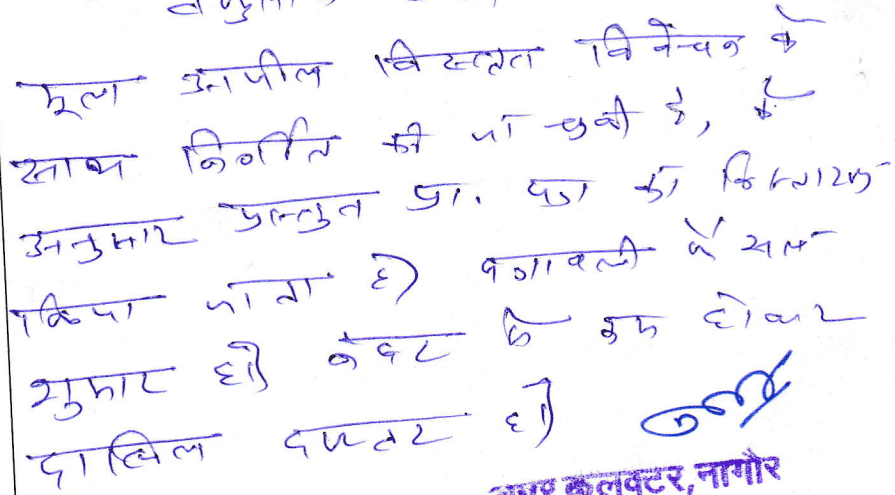 मूल अपील विस्तृत विवेचन के
साथ निर्णीत की जा चुकी है, के
अनुसार प्रस्तुत प्रा. पत्र का निस्तारण
किया जाता है। पत्रावली फैसल
शुमार हो। नंबर से कम होकर
दाखिल दफ्तर हो।
कलक्टर, नागौर